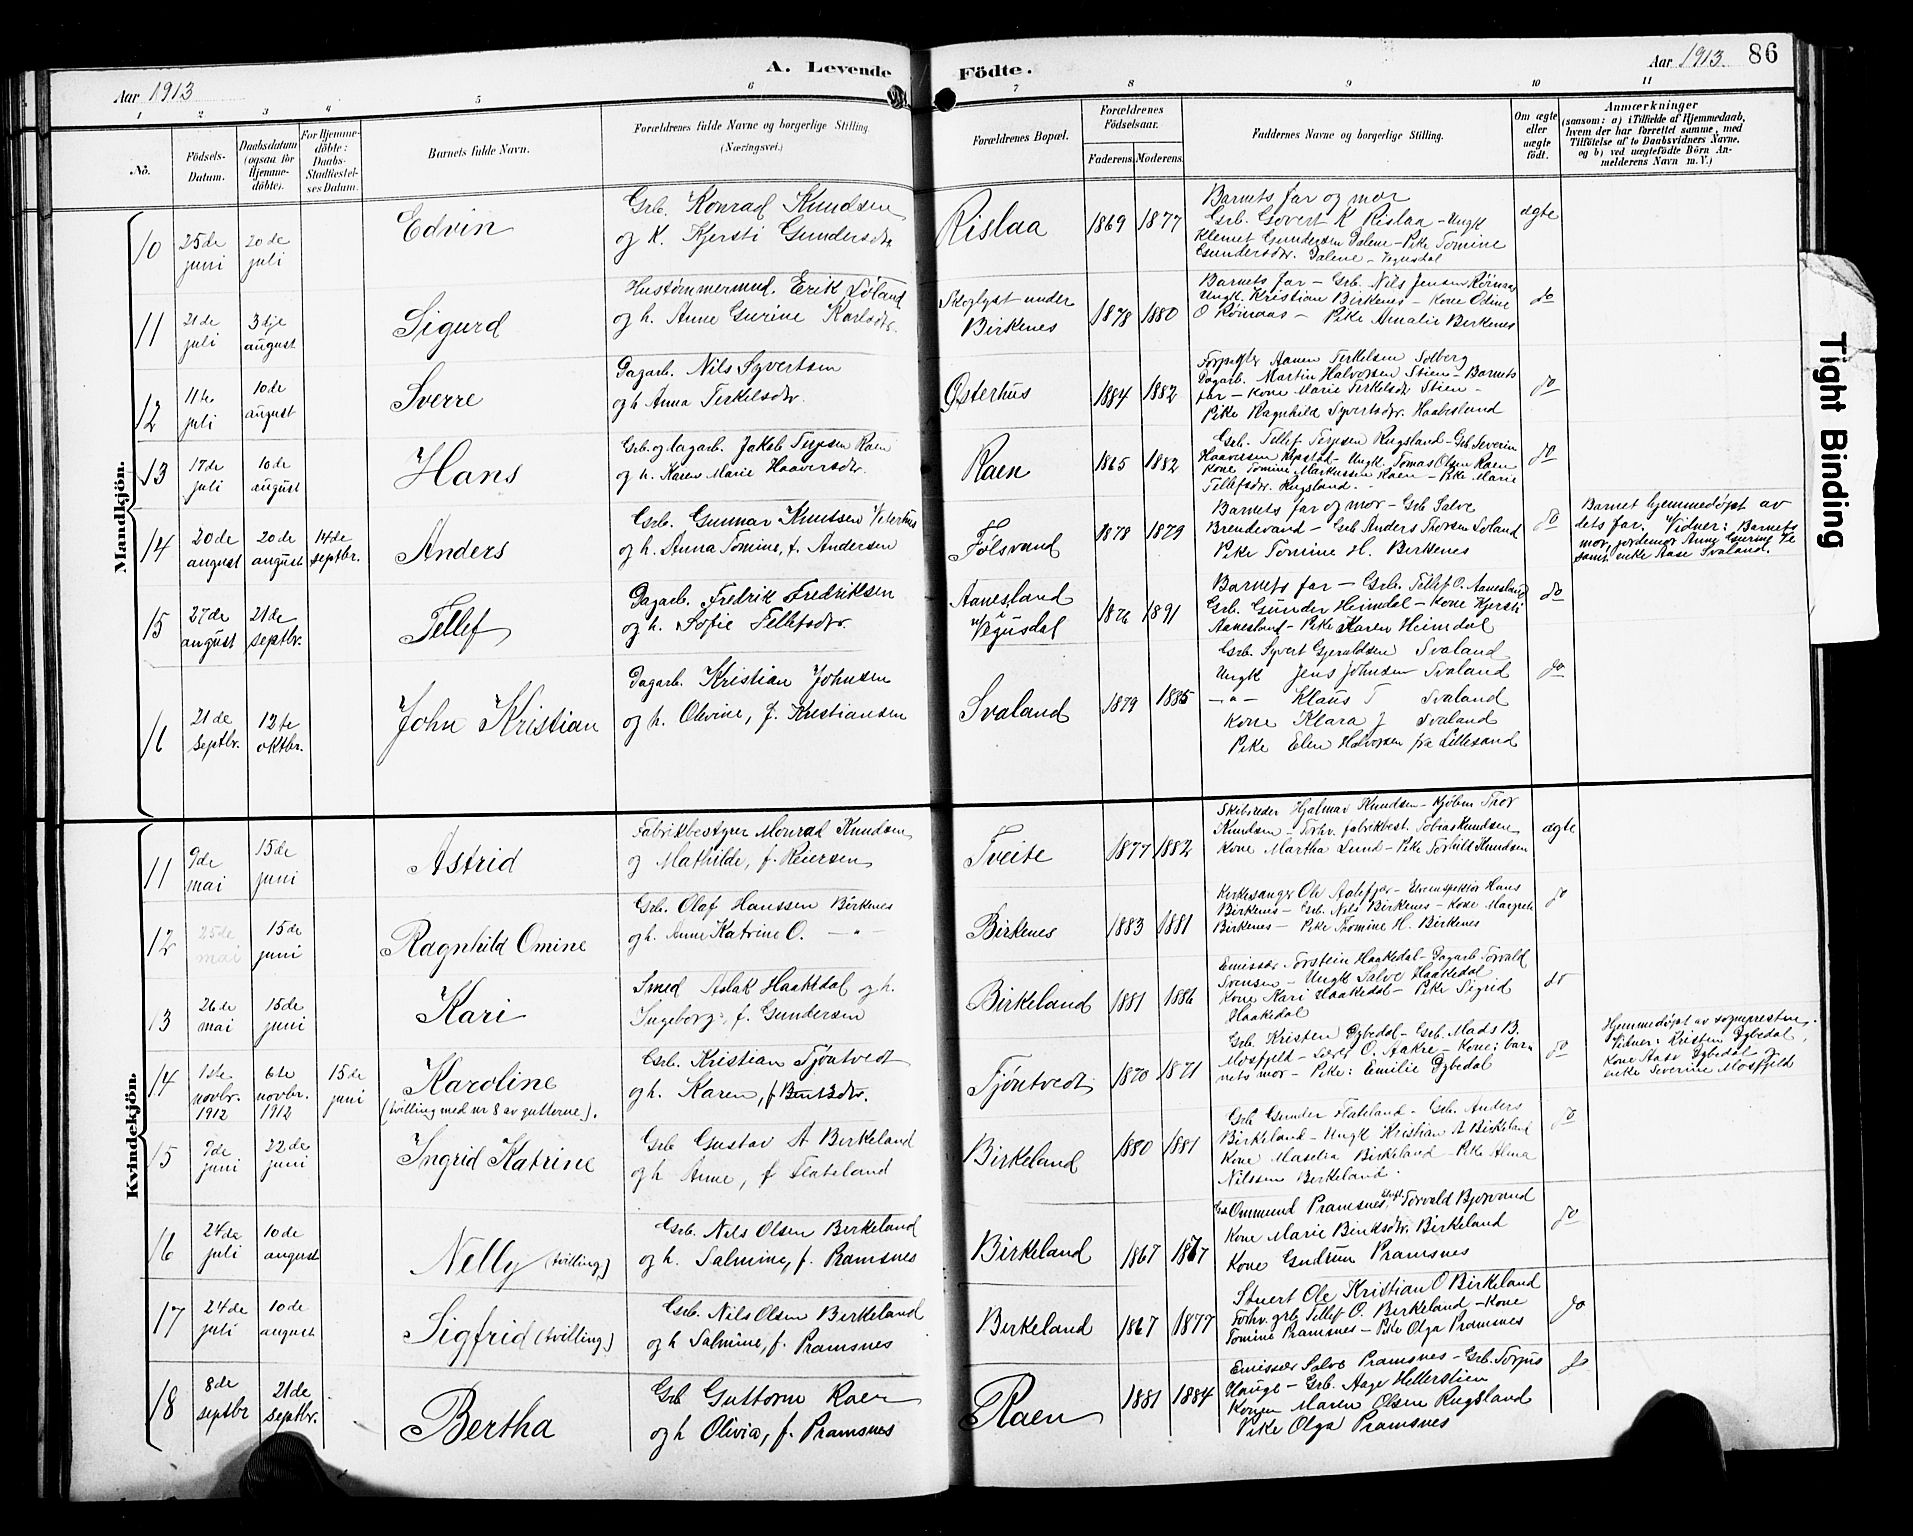 A. Levende Födte.
Aar 1913
Aar 1913. 86
1 2 3 4 5 6 7 8 9 10 11
No.
Födsels-Datum.
Daabsdatum (ogsaa for Hjemmedöbte).
For Hjemmedöbte: Daabs-Stadfæstelses Datum.
Barnets fulde Navn.
Forældrenes fulde Navne og borgerlige Stilling. (Næringsvei.)
Forældrenes Bopæl.
Forældrenes Födselsaar.
Faderens. Moderens.
Faddernes Navne og borgerlige Stilling.
Om ægte eller uægte födt.
Anmærkninger
(saasom: a) i Tilfælde af Hjemmedaab, hvem der har forrettet samme, med Tilföielse af to Daabsvidners Navne, og b) ved uægtefödte Börn Anmelderens Navn m. V.)
Tight Binding
Mandkjön.
10 25de juni 20de juli Edvin
Grb. Konrad Knudsen
og K. Kjersti Gundersdtr
Rislaa 1869 1877
Barnets far og mor
Grb. Govert K Rislaa - Ungk
Klemet Gundersen Dalene - Pike Tomine
Gundersdtr. Dalene - Vegusdal
ægte
11 21de juli 3dje august Sigurd
Hustømmermnd. Erik Løland
og h. Anne Gurine Karlsdtr.
Skoglyst under
Birkenes 1878 1880
Barnets far - Grb. Nils Jensen
Ungk. Kristian Birkenes - Kone Odine
O Rømaas - Pike Amalie Birkenes
do
12 11te juli 10de august Sverre
Dagarb. Nils Syvertsen
og h. Anna Terkelsdtr.
Østerhus 1884 1882
Aanen Terkelsen Solberg
Dagarb. Martin Halvorsen Stien - Barnets
far - Kone Marie Terkelsdtr Stien -
Pike Ragnhild Syvertsdtr. Haabesland
do
13 17de juli 10de august Hans
Grb. og dagarb. Jakob Terjesen Raen
og h. Karen Marie Haaversdtr.
Raen 1865 1882
Grb. Tellef Terjesen Rugsland - Grb Severin
Haaversen - Ungk. Tomas Olsen Raen
Kone Tomine Markussen Raen - Pike Marie
Tellefsdtr. Rugsland.
do
14 20de august 20de august 14de septbr. Anders
Grb. Gunnar Knutsen
og h. Anna Tomine, f. Andersen
Følsvand 1878 1879
Barnets far og mor - Grb Salve
Brendevand - Grb Anders Thorsen Svaland
Pike Tomine H. Birkenes
do
Barnet hjemmedøpt av
dets far. Vidner: Barnets
mor, jordemor Anne Gurine
samt enke Aase Svaland.
15 27de august 21de septbr. Tellef
Dagarb. Fredrik Fredriksen
og h. Sofie Tellefsdtr.
Aanesland
i
Vegusdal 1876 1891
Barnets far - Grb. Tellef O. Aanesland
Grb. Gunder Heimdal - Kone Kjersti
Aanesland - Pike Karen Heimdal
do
16 21de septbr. 12te oktbr. John Kristian
Dagarb. Kristian Johnsen
og h. Olevine, f. Kristiansen
Svaland 1879 1885
Grb. Syvert Gjeruldsen Svaland
Ungk Jens Johnsen Svaland
-"- Klaus T Svaland
Kone Klara J Svaland
Pike Elen Halvorsen fra Lillesand
do
Kvindekjön.
11 9de mai 15de juni Astrid
Fabrikbestyrer Monrad Knudsen
og Mathilde, f. Reiersen
Tveite 1877 1882
Skibsreder Hjalmar Knudsen - Kjøbm Thor
Knudsen - Forhv. fabrikbest. Tobias Knudsen
Kone Martha Lund - Pike Torhild Knudsen
ægte
12 25de mai 15de juni Ragnhild Omine
Grb. Olaf Hanssen Birkenes
og h. Anne Katrine O. -"-
Birkenes 1883 1881
Kirkesanger Ole Aalefjær - Elveinspektør Hans
Birkenes - Grb. Nils Birkenes - Kone Margrete
Birkenes - Pike Thomine H. Birkenes
do
13 26de mai 15de juni Kari
Smed Aslak Haakedal og h.
Ingeborg, f. Gundersen
Birkeland 1881 1886
Emissær Torstein Haakedal - Dagarb. Torvald
Svensen - Ungk Salve Haakedal
Kone Kari Haakedal - Pike Sigrid
Haakedal
do
14 1ste novbr. 1912 6te novbr. 1912 15de juni Karoline
(tvilling med nr 8 av guttene).
Grb. Kristian Tjøntvedt
og h. Karen, f.
Tjøntvedt 1870 1871
Grb. Kristen Dybedal - Grb. Mads B.
Mosfjeld - O. Aakre - Kone: bar-
nets mor - Pike: Emilie Dybedal
do
Hjemmedøpt av sognepresten.
Vidner: Kristen Dybedal,
Kone Aase Dybedal og
enke Severine Mosfjeld
15 9de juni 22de juni Ingrid Katrine
Grb Gustav A Birkeland
og h Anne, f Flateland
Birkeland 1880 1881
Grb Gunder Flateland - Grb. Anders
Birkeland - Ungk Kristian A Birkeland
Kone Maselia Birkeland - Pike Alma
Nilssen Birkeland.
do
16 24de juli 10de august Nelly (tvilling)
Grb. Nils Olsen Birkeland
og h. Salmine, f. Pramsnes
Birkeland 1867 1877
Grb Ommund Pramsnes, Ungk. Torvald Bjorvand
Kone Marie Benksdtr. Birkeland
Kone Gudrun Pramsnes
do
17 24de juli 10de august Sigfrid (tvilling)
Grb. Nils Olsen Birkeland
og h Salmine, f. Pramsnes
Birkeland 1867 1877
Stuert Ole Kristian O Birkeland
Forhv. grb Tellef O. Birkeland - Kone
Tomine Pramsnes - Pike Olga Pramsnes
do
18 8de septbr 21de septbr. Bertha
Grb Guttorm Raen
og h Olivia, f. Pramsnes
Raen 1881 1884
Emissær Salve Pramsnes - Grb. Torjus
Hauge - Grb. Aage Hellerstien
Konen Maren Olsen Rugsland
Pike Olga Pramsnes
do